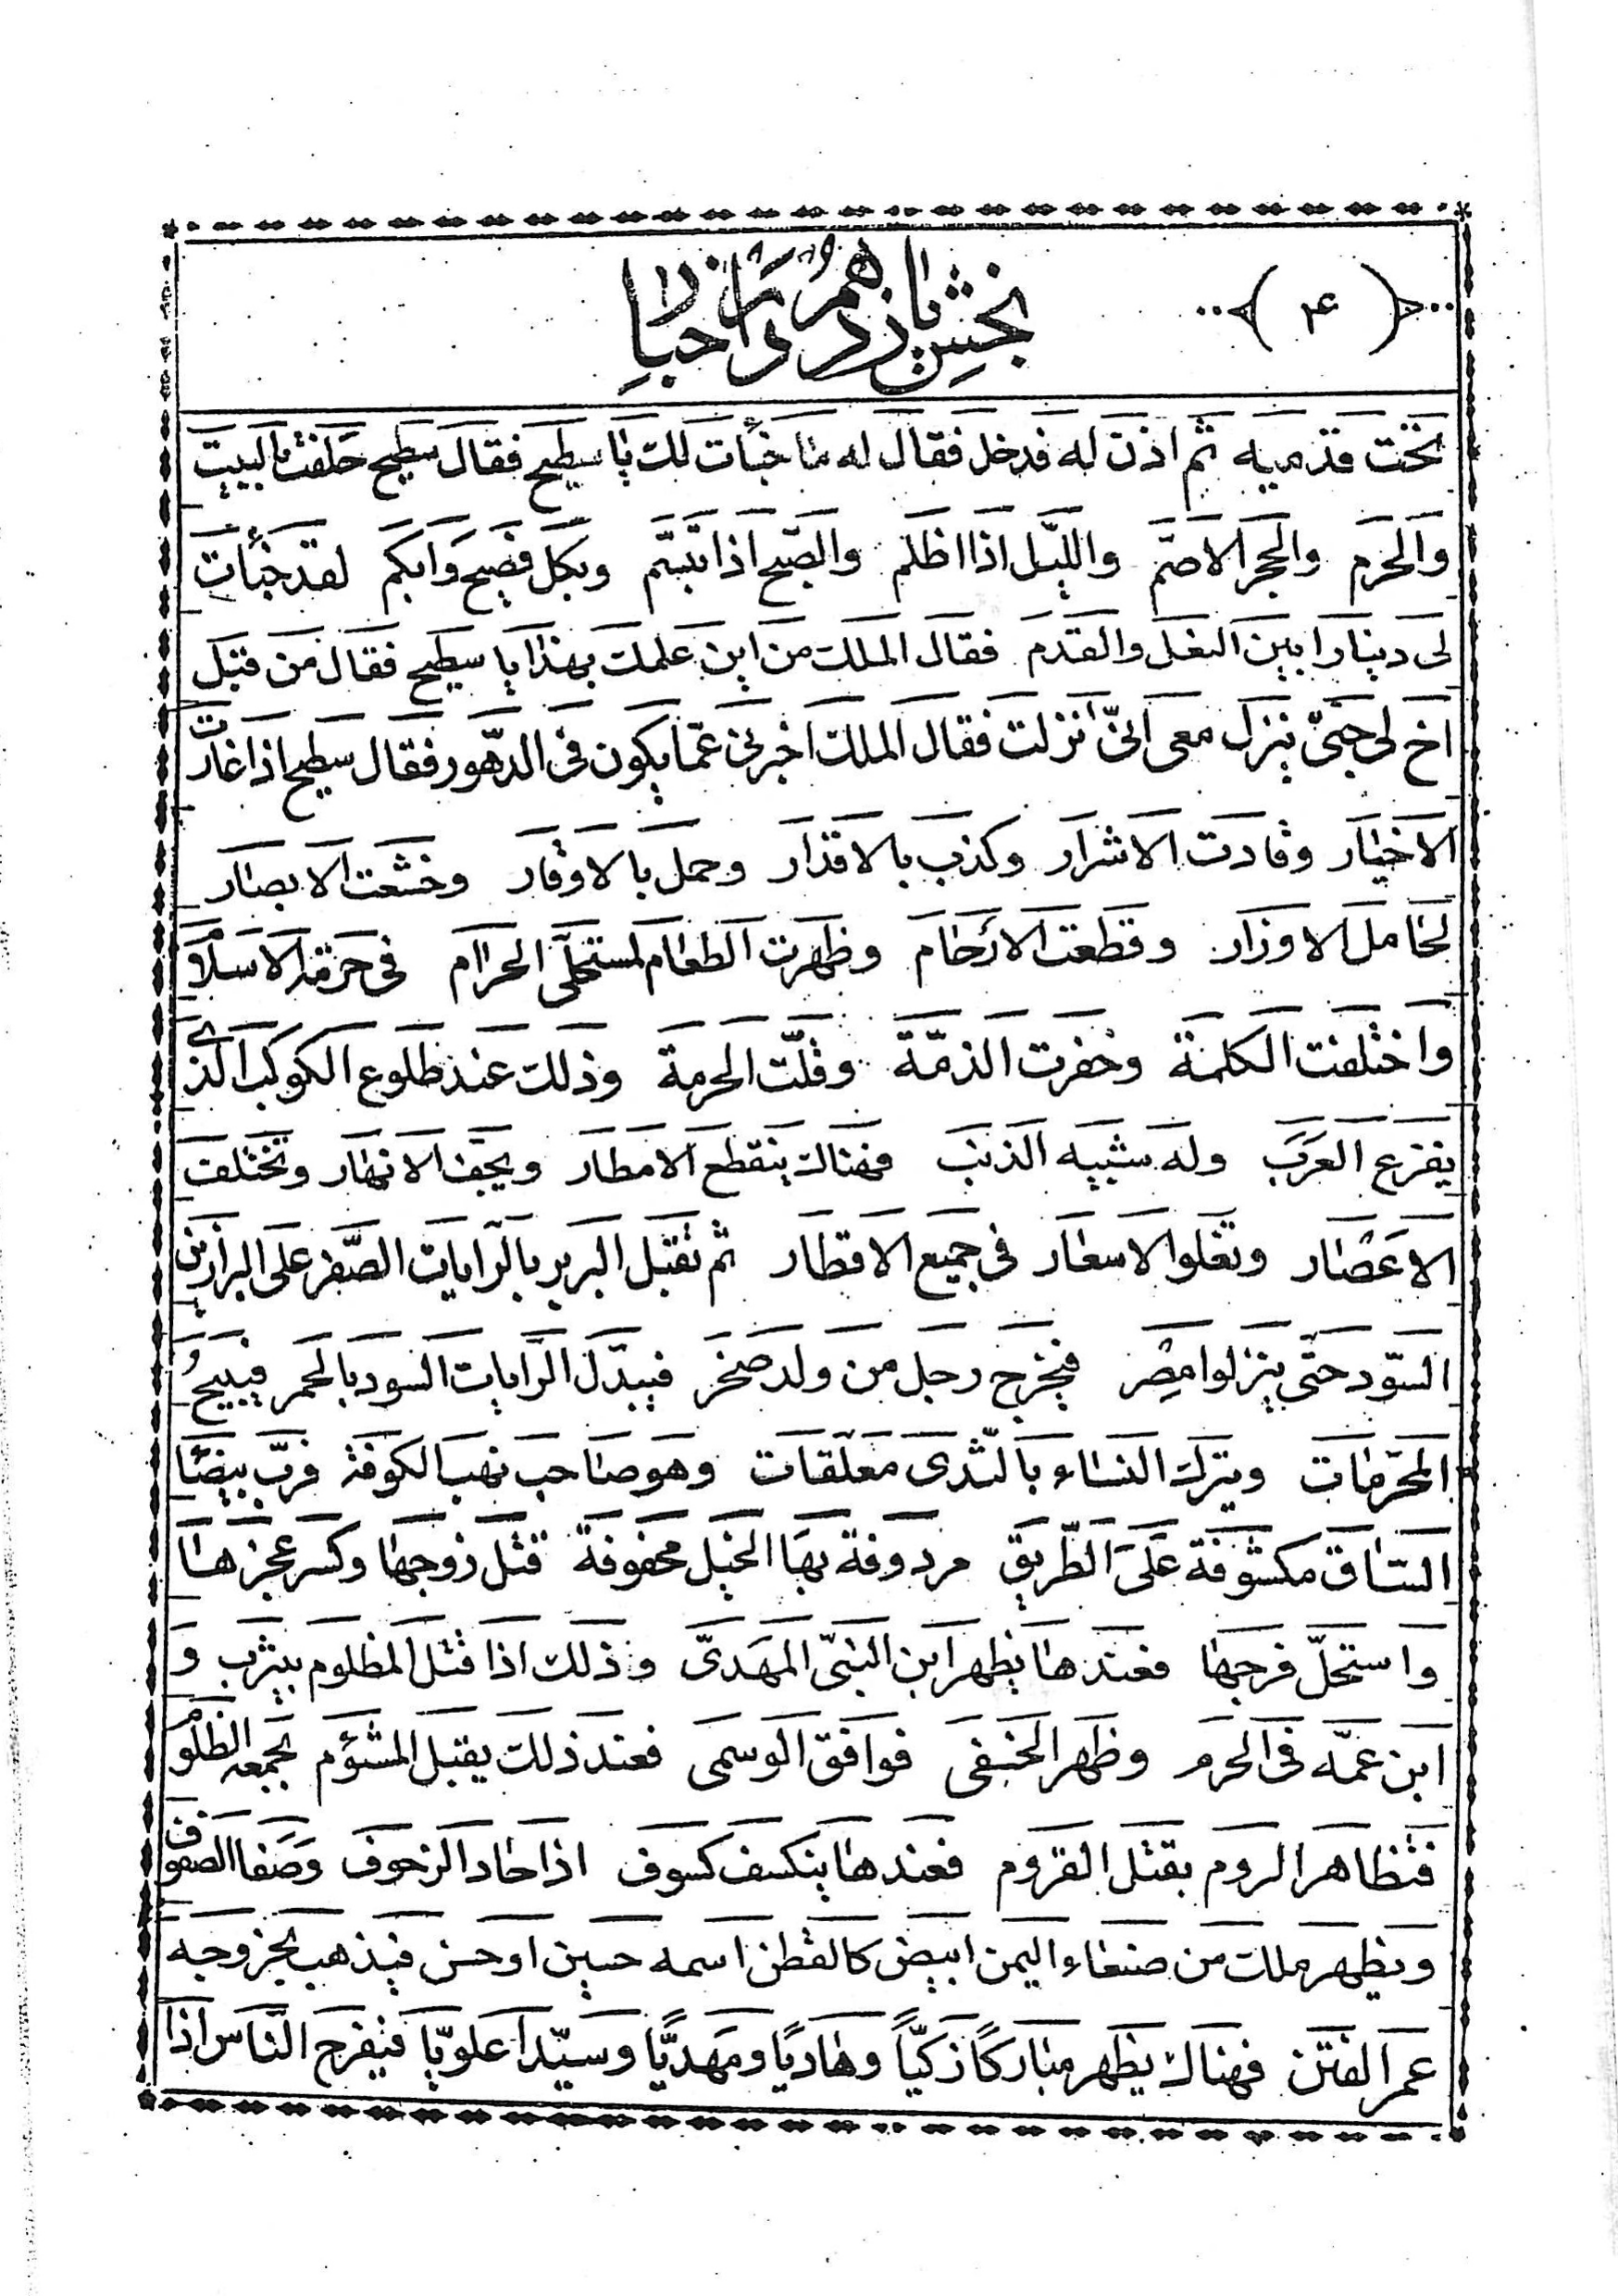 ﴿ ۴ ﴾
بخش یازدهم در اخبار
تحت قدمیه ثم اذن له فدخل فقال له ما خبأت لك یا سطیح فقال سطیح حلفت بالبیت
والحرم والحجر الاصمّ واللیل اذا اظلم والصبح اذا تبسّم وبکل فصیح وابکم لقد خبأت
لی دینارا بین النعل والقدم فقال الملك من این علمت بهذا یا سطیح فقال من قبل
اخ لی جنّی ینزل معی انّی نزلت فقال الملك اخبرنی عمّا یکون فی الدّهور فقال سطیح اذا غارت
الاخیار وقادت الاشرار وکذب بالاقدار وحمل بالاوقار وخشعت الابصار
لحامل الاوزار وقطعت الارحام وظهرت الطعام لمستحلّی الحرام فی حرمة الاسلام
واختلفت الکلمة وخفرت الذمّة وقلّت الحرمة وذلك عند طلوع الکوکب الذی
یفزع العرب وله شبیه الذنب فهناك ینقطع الامطار ویجف الانهار وتختلف
الاعصار وتغلو الاسعار فی جمیع الاقطار ثم تقبل البربر بالرایات الصّفر علی البراذین
السّود حتّی ینزلوا مصر فیخرج رجل من ولد صخر فیبدّل الرّایات السود بالحمر فیبیحُ
المحرّمات ویترك النساء بالثّدی معلّقات وهو صاحب نهب الکوفة فربّ بیضاء
السّاق مکشوفة علی الطّریق مردوفة بها الخیل محفوفة قتل زوجها وکسر عجزها
واستحلّ فرجها فعندها یظهر ابن النبیّ المهدیّ وذلك اذا قتل المظلوم بیثرب و
ابن عمّه فی الحرم وظهر الخفی فوافق الوسمی فعند ذلك یقبل المشؤم بجمعه الظلوم
فتظاهر الروم بقتل القروم فعندها ینکسف کسوف اذا جاء الزحوف وصفا الصفوف
ویظهر ملك من صنعاء الیمن ابیض کالقطن اسمه حسین او حسن فیذهب بخروجه
عمر الفتن فهناك یظهر مبارکاً زکیّاً وهادیًا ومهدیًّا وسیّداً علویّا فیفرح النّاس اذا